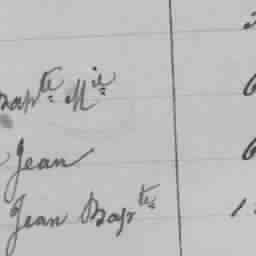 Bapte Mie 6
Jean 6
Jean Bapte 1